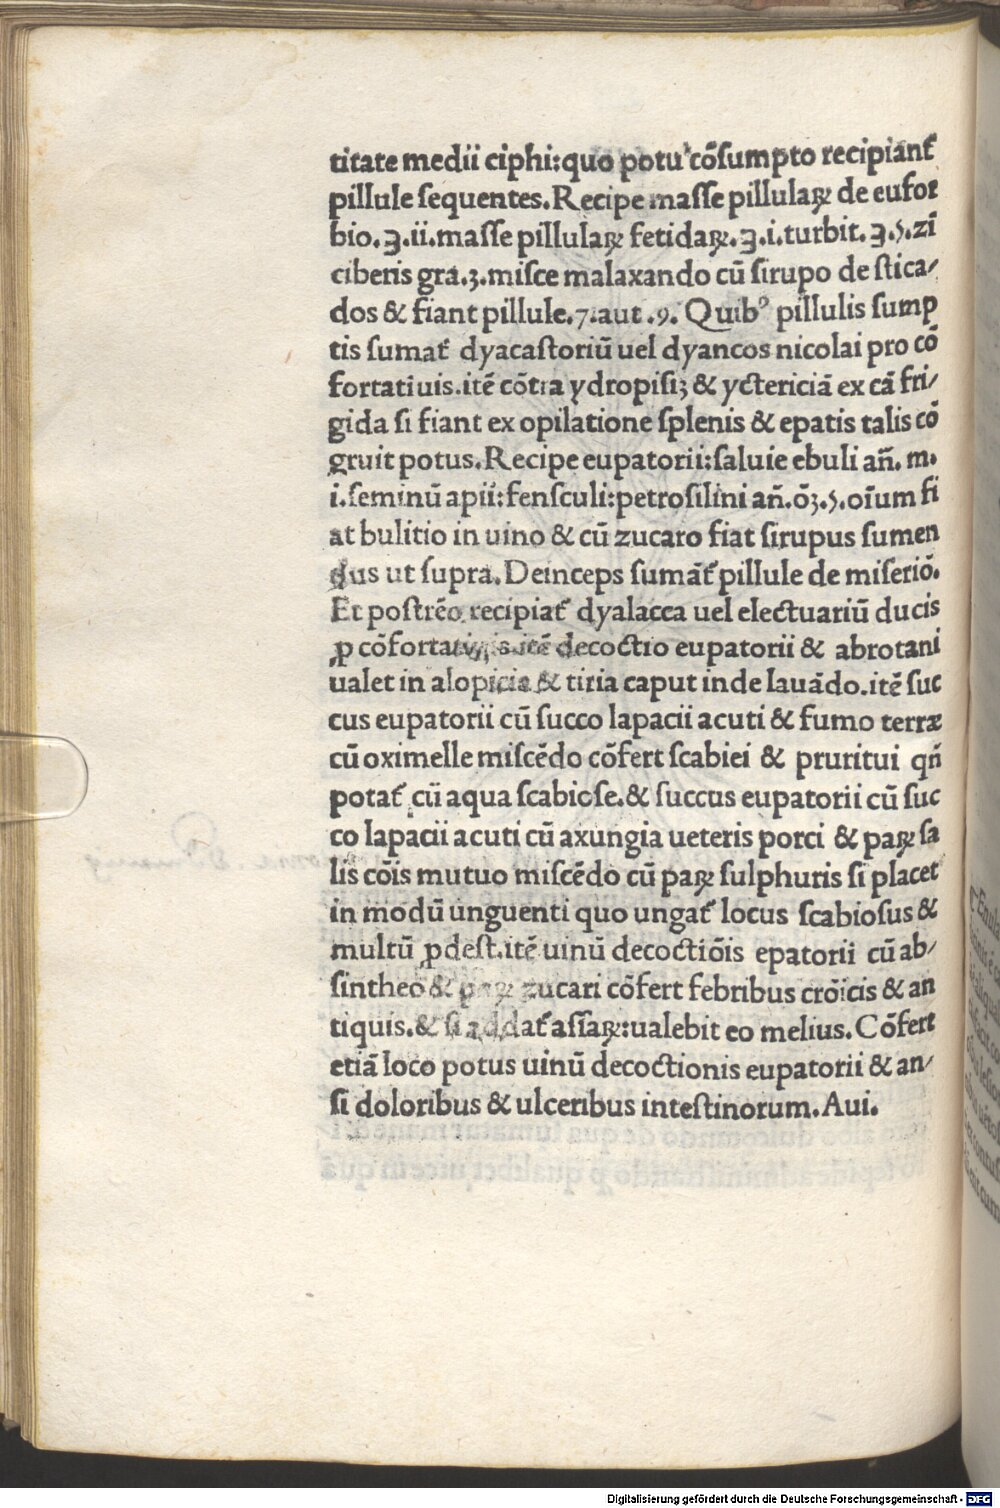 titate medii ciphi:quo potu cōſumpto recipiant᷑
pillule ſequentes.Recipe maſſe pillulaꝝ de eufor
bio.ʒ.ii.maſſe pillulaꝝ fetidaꝝ.ʒ.i.turbit.ʒ.ſ.zī
ciberis gra.3.miſce malaxando cū ſirupo de ſtica/
dos & fiant pillule.7.aut .9. Quibꝰ pillulis ſump
tis ſumat᷑ dyacaſtoriū uel dyancos nicolai pro cō
fortatiuis.itē cōtra ydropiſiʒ & yctericiā ex cā fri/
gida ſi fiant ex opilatione ſplenis & epatis talis cō
gruit potus.Recipe eupatorii:ſaluie ebuli an̄. m.
i.ſeminū apii:fenſculi:petroſilini an̄.ōʒ.ſ.oīum fi
at bulitio in uino & cū zucaro fiat ſirupus ſumen
dus ut ſupra.Deinceps ſumāt᷑ pillule de miſeriō.
Et poſtrēo recipiat᷑ dyalacca uel electuariū ducis
ꝓ cōfortatiuis.itē decoctio eupatorii & abrotani
ualet in alopicia & tiria caput inde lauādo.itē ſuc
cus eupatorii cū ſucco lapacii acuti & fumo terræ
cū oximelle miſcēdo cōfert ſcabiei & pruritui qn̄
potat᷑ cū aqua ſcabioſe.& ſuccus eupatorii cū ſuc
co lapacii acuti cū axungia ueteris porci & paꝝ ſa
lis cōis mutuo miſcēdo cū paꝝ ſulphuris ſi placet
in modū unguenti quo ungat᷑ locus ſcabioſus &
multū ꝓdeſt.itē uinū decoctiōis epatorii cū ab/
ſintheo & paꝝ zucari cōfert febribus crōicis & an
tiquis.& ſi addat᷑ aſſaꝝ:ualebit eo melius.Cōfert
etiā loco potus uinū decoctionis eupatorii & an/
ſi doloribus & ulceribus inteſtinorum.Aui.
Digitalisierung gefördert durch die Deutsche Forschungsgemeinschaft - DFG